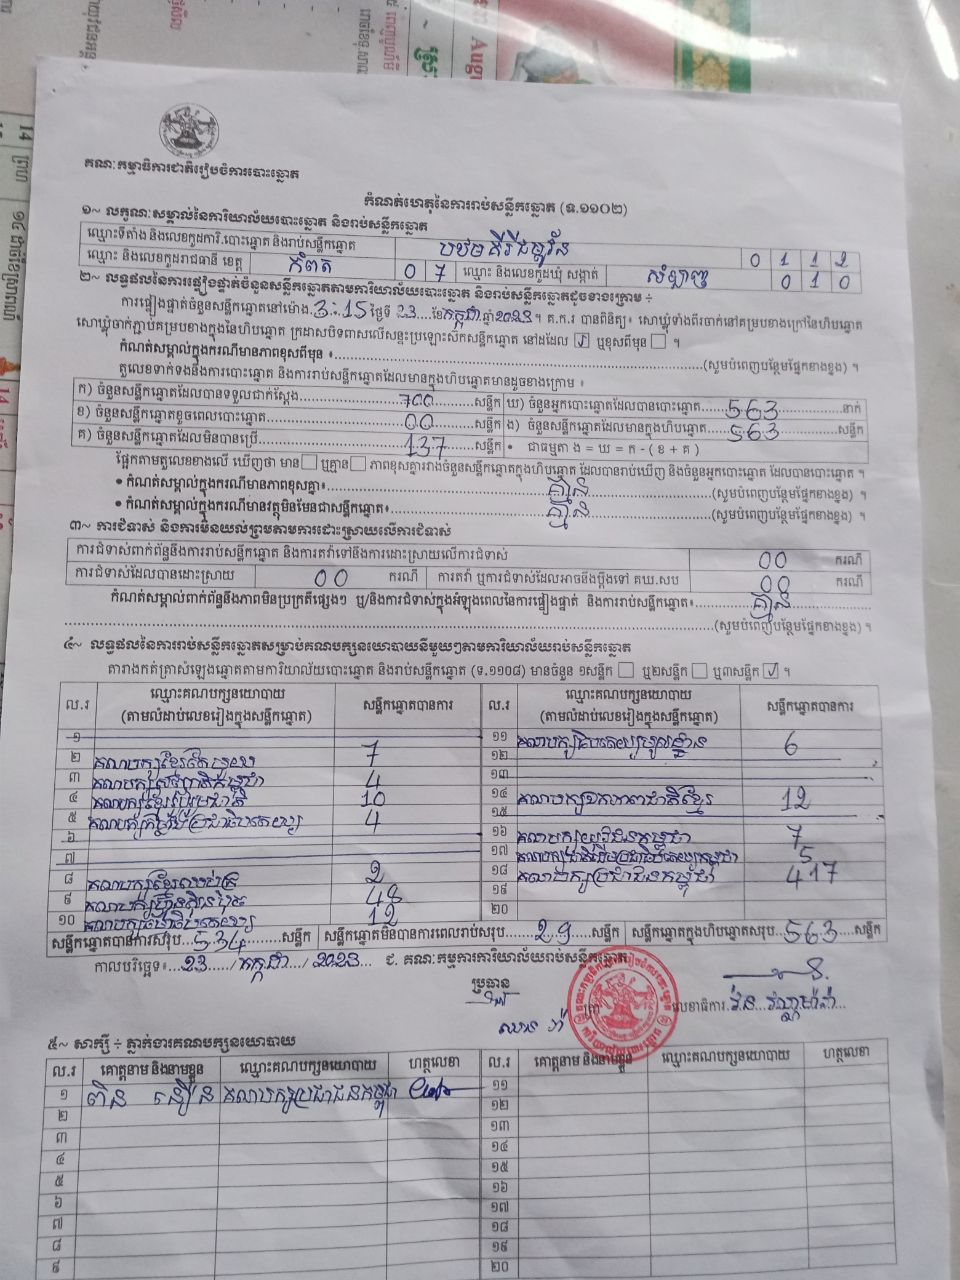 គណៈកម្មាធិការជាតិរៀបចំការបោះឆ្នោត
កំណត់ហេតុនៃការរាប់សន្លឹកឆ្នោត (ទ.១១០២)
១~ លក្ខណៈសម្គាល់នៃការិយាល័យបោះឆ្នោត និងរាប់សន្លឹកឆ្នោត
ឈ្មោះទីតាំង និងលេខកូដការិ.បោះឆ្នោត និងរាប់សន្លឹកឆ្នោត 0 1 1 2
ឈ្មោះ និងលេខកូដរាជធានី ខេត្ត កំពត 0 7 ឈ្មោះ និងលេខកូដឃុំ សង្កាត់ សំឡាញ 0 1 0
២~ លទ្ធផលនៃការផ្ទៀងផ្ទាត់ចំនួនសន្លឹកឆ្នោតតាមការិយាល័យបោះឆ្នោត និងរាប់សន្លឹកឆ្នោតដូចខាងក្រោម ÷
ការផ្ទៀងផ្ទាត់ចំនួនសន្លឹកឆ្នោតនៅម៉ោង 3:15 ថ្ងៃទី 23 ខែ កក្កដា ឆ្នាំ 2023 ។ គ.ក.រ បានពិនិត្យ៖ សោឃ្លុំទាំងពីរចាក់នៅគម្របខាងក្រៅនៃហិបឆ្នោត
សោឃ្លុំចាក់ភ្ជាប់គម្របខាងក្នុងនៃហិបឆ្នោត ក្រដាសបិទពាសលើសន្ទះប្រឡោះស៊កសន្លឹកឆ្នោត នៅដដែល ✓ ឬខុសពីមុន ។
កំណត់សម្គាល់ក្នុងករណីមានភាពខុសពីមុន ៖ (សូមបំពេញបន្ថែមផ្នែកខាងខ្នង) ។
តួលេខទាក់ទងនឹងការបោះឆ្នោត និងការរាប់សន្លឹកឆ្នោតដែលមានក្នុងហិបឆ្នោតមានដូចខាងក្រោម ៖
ក) ចំនួនសន្លឹកឆ្នោតដែលបានទទួលជាក់ស្តែង 700 សន្លឹក ឃ) ចំនួនអ្នកបោះឆ្នោតដែលបានបោះឆ្នោត 563 នាក់
ខ) ចំនួនសន្លឹកឆ្នោតខូចពេលបោះឆ្នោត 00 សន្លឹក ង) ចំនួនសន្លឹកឆ្នោតដែលមានក្នុងហិបឆ្នោត 563 សន្លឹក
គ) ចំនួនសន្លឹកឆ្នោតដែលមិនបានប្រើ 137 សន្លឹក • ជាធម្មតា ង = ឃ = ក - ( ខ + គ )
ផ្អែកតាមតួលេខខាងលើ ឃើញថា មាន ឬគ្មាន ភាពខុសគ្នារវាងចំនួនសន្លឹកឆ្នោតក្នុងហិបឆ្នោត ដែលបានរាប់ឃើញ និងចំនួនអ្នកបោះឆ្នោត ដែលបានបោះឆ្នោត ។
• កំណត់សម្គាល់ក្នុងករណីមានភាពខុសគ្នា៖ គ្មាន (សូមបំពេញបន្ថែមផ្នែកខាងខ្នង) ។
• កំណត់សម្គាល់ក្នុងករណីមានវត្ថុមិនមែនជាសន្លឹកឆ្នោត៖ គ្មាន (សូមបំពេញបន្ថែមផ្នែកខាងខ្នង) ។
៣~ ការជំទាស់ និងការមិនយល់ព្រមតាមការដោះស្រាយលើការជំទាស់
ការជំទាស់ពាក់ព័ន្ធនឹងការរាប់សន្លឹកឆ្នោត និងការតវ៉ាទៅនឹងការដោះស្រាយលើការជំទាស់ 00 ករណី
ការជំទាស់ដែលបានដោះស្រាយ 00 ករណី ការតវ៉ា ឬការជំទាស់ដែលអាចនឹងប្តឹងទៅ គឃ.សប 00 ករណី
កំណត់សម្គាល់ពាក់ព័ន្ធនឹងភាពមិនប្រក្រតីផ្សេងៗ ឬ/និងការជំទាស់ក្នុងអំឡុងពេលនៃការផ្ទៀងផ្ទាត់ និងការរាប់សន្លឹកឆ្នោត៖ គ្មាន
(សូមបំពេញបន្ថែមផ្នែកខាងខ្នង) ។
៤~ លទ្ធផលនៃការរាប់សន្លឹកឆ្នោតសម្រាប់គណបក្សនយោបាយនីមួយៗតាមការិយាល័យរាប់សន្លឹកឆ្នោត
តារាងកត់ត្រាសំឡេងឆ្នោតតាមការិយាល័យបោះឆ្នោត និងរាប់សន្លឹកឆ្នោត (ទ.១១០៨) មានចំនួន ១សន្លឹក ឬ២សន្លឹក ឬ៣សន្លឹក ✓ ។
ល.រ ឈ្មោះគណបក្សនយោបាយ (តាមលំដាប់លេខរៀងក្នុងសន្លឹកឆ្នោត) សន្លឹកឆ្នោតបានការ ល.រ ឈ្មោះគណបក្សនយោបាយ (តាមលំដាប់លេខរៀងក្នុងសន្លឹកឆ្នោត) សន្លឹកឆ្នោតបានការ
១
២ គណបក្សខ្មែរតែមួយ 7
៣ 4
៤ 10
៥ គណបក្សកម្លាំងប្រជាធិបតេយ្យ 4
៦
៧
៨ 2
៩ គណបក្សហ្វ៊ុនស៊ិនប៉ិច 48
១០ 12
១១ គណបក្សប្រជាធិបតេយ្យមូលដ្ឋាន 6
១២
១៣
១៤ គណបក្សឯកភាពជាតិខ្មែរ 12
១៥
១៦ គណបក្សយុវជនកម្ពុជា 7
១៧ 5
១៨ គណបក្សប្រជាជនកម្ពុជា 417
១៩
២០
សន្លឹកឆ្នោតបានការសរុប 534 សន្លឹក សន្លឹកឆ្នោតមិនបានការពេលរាប់សរុប 29 សន្លឹក សន្លឹកឆ្នោតក្នុងហិបឆ្នោតសរុប 563 សន្លឹក
កាលបរិច្ឆេទ៖ 23 / កក្កដា / 2023 ជ. គណៈកម្មការការិយាល័យរាប់សន្លឹកឆ្នោត
ប្រធាន
លេខាធិការ
៥~ សាក្សី ÷ ភ្នាក់ងារគណបក្សនយោបាយ
ល.រ គោត្តនាម និងនាមខ្លួន ឈ្មោះគណបក្សនយោបាយ ហត្ថលេខា ល.រ គោត្តនាម និងនាមខ្លួន ឈ្មោះគណបក្សនយោបាយ ហត្ថលេខា
១ គណបក្សប្រជាជនកម្ពុជា ១១
២ ១២
៣ ១៣
៤ ១៤
៥ ១៥
៦ ១៦
៧ ១៧
៨ ១៨
៩ ១៩
២០